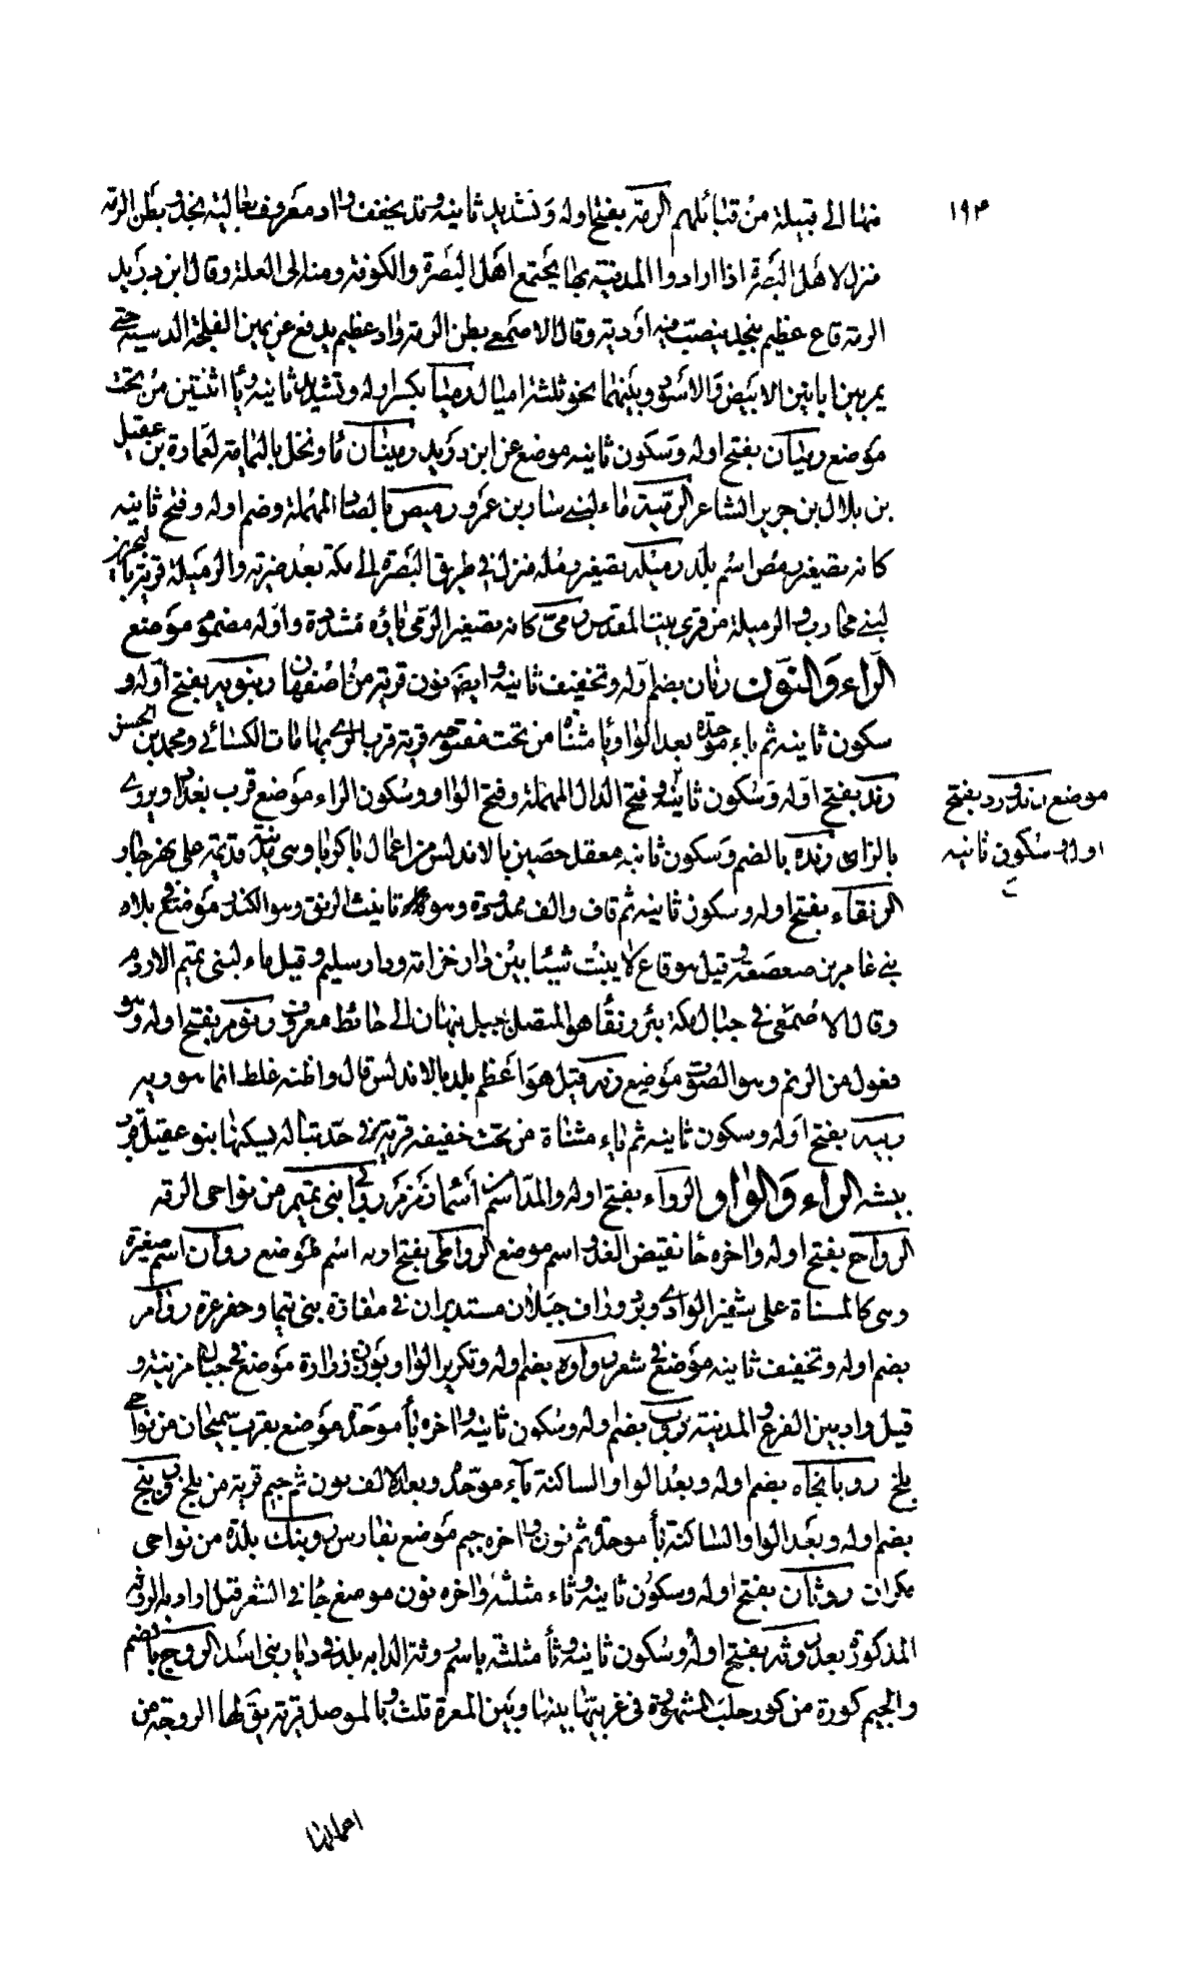 ١٩٣
منها الى قبيلة من قبائلهم الرمة بفتح اوله وتشديد ثانيه وقد يخفف واد معروف بعالية نجد وبطن الرمة
منزل لاهل البصرة اذا ارادوا المدينة بها يجتمع اهل البصرة والكوفة ومنه الى العلة وقال ابن دريد
الرمة قاع عظيم بنجد ينصب فيه اودية وقال الاصمعى بطن الرمة واد عظيم يدفع عن يمين الفلجة الدسينة حتى
يمر بين ابانين الابيض والاسود وبينهما نحو ثلثة اميال رميا بكسر اوله وتشديد ثانيه ويا اثنتين من تحت
موضع رميان بفتح اوله وسكون ثانيه موضع عن ابن دريد رمينان ماء ونخل باليمامة لعمارة بن عقيل
بن بلال بن جرير الشاعر ماء لبنى سيار بن عمرو رميص بالصاد المهملة وضم اوله وفتح ثانيه
كانه تصغير رمص اسم بلد رميلة تصغير رملة منزل فى طريق البصرة الى مكة بعد ضرية والرميلة قرية بالبحرين
لبنى محارب والرميلة من قرى بيت المقدس رمى كانه تصغير الرمى ياؤه مشددة واوله مضموم موضع
الراء والنون رنان بضم اوله وتخفيف ثانيه وايضا نون قرية من اصفهان رنبويه بفتح اوله و
سكون ثانيه ثم باء موحدة بعد الواو يا مثناة من تحت مفتوحه قرية قرب الرى بها مات الكسائى ومحمد بن الحسن
رند بفتح اوله وسكون ثانيه وفتح الدال المهملة وفتح الواو وسكون الراء موضع قرب بغداد ويروى
موضع رندورد بفتح
اوله وسكون ثانيه
بالزاى رندة بالضم وسكون ثانيه معقل حصين بالاندلس من اعمال تاكرنا وهى مدينة قديمة على نهر جار
الرنقاء بفتح اوله وسكون ثانيه ثم قاف والف ممدودة وهو تانيث الرنق وهو الكدر موضع فى بلاد
بنى عامر بن صعصعة وقيل هو قاع لا ينبت شيئا بين دار خزاعة ودار سليم وقيل ماء لبنى تميم الادرم
وقال الاصمعى فى جبال مكة بئر رنقا هو المتصل بجبل نبهان الى حائط معروف رنوم بفتح اوله وهو
فعول من الرنم وهو الصوت موضع رنه قيل هو اعظم بلد بالاندلس قال واظنه غلط انما هو ريه
رنيه بفتح اوله وسكون ثانيه ثم ياء مثناة من تحت خفيفه قرية فى حد تباله يسكنها بنو عقيل قرب
بيشه الراء والواو الرواء بفتح اوله والمد اسم من اسماء زمزم روابى بنى تميم من نواحى الرقة
الرواح بفتح اوله واخره حا نقيض الغدو اسم موضع الرواطى بفتح اوله اسم لموضع روان اسم صغيرة
وهى كالمسناة على شفير الوادى جبلان مستديران فى مفازة بنى تيما وحفر عزة روام
بضم اوله وتخفيف ثانيه موضع فى شعر رواوه بضم اوله وتكرير الواو بوزن زرارة موضع فى جبال مزينة و
قيل واد بين الفرع والمدينة روب بضم اوله وسكون ثانيه واخره با موحدة موضع بقرب سمنجان من نواحى
بلخ روبانجاه بضم اوله وبعد الواو الساكنة باء موحدة وبعد الالف نون ثم جيم قرية من بلخ روبنج
بضم اوله وبعد الواو الساكنة با موحدة ثم نون واخره جيم موضع بفارس روبنك بلدة من نواحى
مكران روثان بفتح اوله وسكون ثانيه وثاء مثلثة واخره نون موضع جاء فى الشعر قيل اراد به الروثة
المذكورة بعد روثة بفتح اوله وسكون ثانيه وثا مثلثة باسم روثة الدابه بلد فى ديار بنى اسد الروج بالضم
والجيم كورة من كور حلب المشهورة فى غربيها بينها وبين المعرة قلت وبالموصل قرية يق لها الروجة من
اعمالها